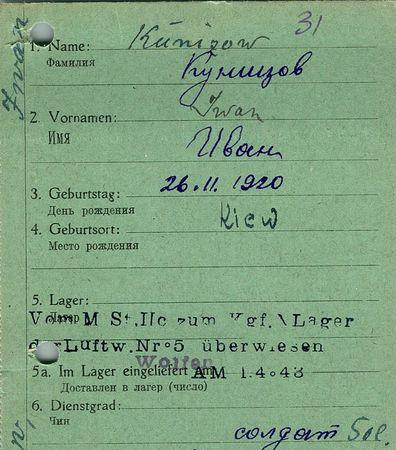 31
1. Name: Künizow
Фамилия Куницов
2. Vornamen: Iwan
Имя Иван
3. Geburtstag: 26.11.1920
День рождения
4. Geburtsort: Kiew
Место рождения
5. Lager:
Лагер
Vom M St. IIc zum Kgf. Lager
der Luftw. Nr 5 überwiesen
Wolfen
5a. Im Lager eingeliefert am AM 1.4.43
Доставлен в лагер (число)
6. Dienstgrad:
Чин
солдат Sol.
Iwan